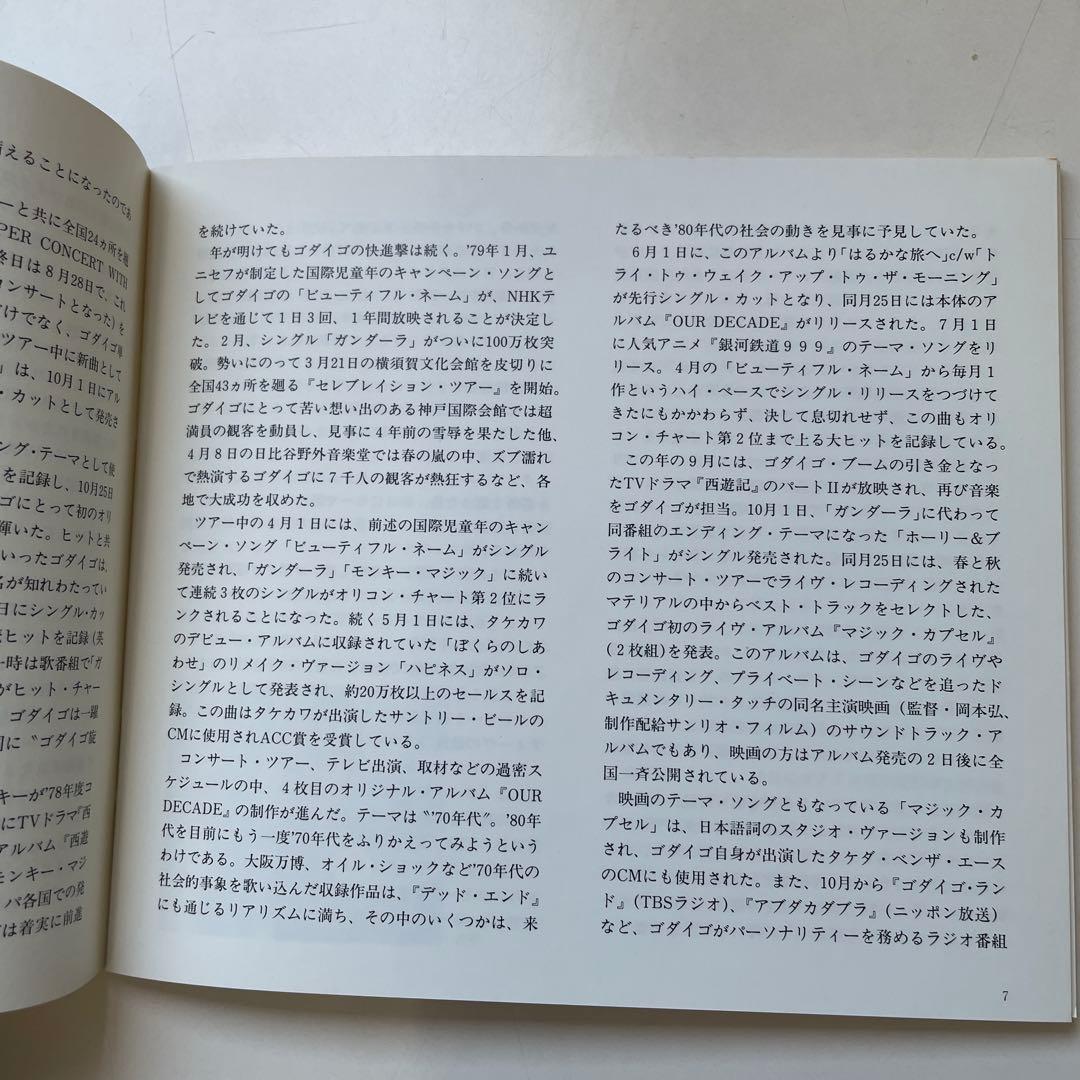 備えることになったのであ
ーと共に全国24ヵ所を廻
PER CONCERT WITH
終日は8月28日で、これ
コンサートとなった)を
だけでなく、ゴダイゴ単
ツアー中に新曲として
」は、10月1日にアル
・カットとして発売さ
ング・テーマとして使
を記録し、10月25日
ゴにとって初のオリ
輝いた。ヒットと共
いったゴダイゴは、
名が知れわたってい
日にシングル・カッ
ヒットを記録(英
一時は歌番組で「ガ
がヒット・チャー
、ゴダイゴは一躍
に〝ゴダイゴ旋
キーが'78年度コ
にTVドラマ『西
アルバム『西遊
モンキー・マジ
パ各国での発
は着実に前進
を続けていた。
年が明けてもゴダイゴの快進撃は続く。'79年1月、ユ
ニセフが制定した国際児童年のキャンペーン・ソングと
してゴダイゴの「ビューティフル・ネーム」が、NHKテ
レビを通じて1日3回、1年間放映されることが決定し
た。2月、シングル「ガンダーラ」がついに100万枚突
破。勢いにのって3月21日の横須賀文化会館を皮切りに
全国43ヵ所を廻る『セレブレイション・ツアー』を開始。
ゴダイゴにとって苦い想い出のある神戸国際会館では超
満員の観客を動員し、見事に4年前の雪辱を果たした他、
4月8日の日比谷野外音楽堂では春の嵐の中、ズブ濡れ
で熱演するゴダイゴに7千人の観客が熱狂するなど、各
地で大成功を収めた。
ツアー中の4月1日には、前述の国際児童年のキャン
ペーン・ソング「ビューティフル・ネーム」がシングル
発売され、「ガンダーラ」「モンキー・マジック」に続い
て連続3枚のシングルがオリコン・チャート第2位にラ
ンクされることになった。続く5月1日には、タケカワ
のデビュー・アルバムに収録されていた「ぼくらのしあ
わせ」のリメイク・ヴァージョン「ハピネス」がソロ・
シングルとして発表され、約20万枚以上のセールスを記
録。この曲はタケカワが出演したサントリー・ビールの
CMに使用されACC賞を受賞している。
コンサート・ツアー、テレビ出演、取材などの過密ス
ケジュールの中、4枚目のオリジナル・アルバム『OUR
DECADE』の制作が進んだ。テーマは〝'70年代〟。'80年
代を目前にもう一度'70年代をふりかえってみようという
わけである。大阪万博、オイル・ショックなど'70年代の
社会的事象を歌い込んだ収録作品は、『デッド・エンド』
にも通じるリアリズムに満ち、その中のいくつかは、来
たるべき'80年代の社会の動きを見事に予見していた。
6月1日に、このアルバムより「はるかな旅へ」c/w「ト
ライ・トゥ・ウェイク・アップ・トゥ・ザ・モーニング」
が先行シングル・カットとなり、同月25日には本体のア
ルバム『OUR DECADE』がリリースされた。7月1日
に人気アニメ『銀河鉄道999』のテーマ・ソングをリ
リース。4月の「ビューティフル・ネーム」から毎月1
作というハイ・ペースでシングル・リリースをつづけて
きたにもかかわらず、決して息切れせず、この曲もオリ
コン・チャート第2位まで上る大ヒットを記録している。
この年の9月には、ゴダイゴ・ブームの引き金となっ
たTVドラマ『西遊記』のパートIIが放映され、再び音楽
をゴダイゴが担当。10月1日、「ガンダーラ」に代わって
同番組のエンディング・テーマになった「ホーリー&ブ
ライト」がシングル発売された。同月25日には、春と秋
のコンサート・ツアーでライヴ・レコーディングされた
マテリアルの中からベスト・トラックをセレクトした、
ゴダイゴ初のライヴ・アルバム『マジック・カプセル』
(2枚組)を発表。このアルバムは、ゴダイゴのライヴや
レコーディング、プライベート・シーンなどを追ったド
キュメンタリー・タッチの同名主演映画(監督・岡本弘、
制作配給サンリオ・フィルム)のサウンドトラック・ア
ルバムでもあり、映画の方はアルバム発売の2日後に全
国一斉公開されている。
映画のテーマ・ソングともなっている「マジック・カ
プセル」は、日本語詞のスタジオ・ヴァージョンも制作
され、ゴダイゴ自身が出演したタケダ・ベンザ・エース
のCMにも使用された。また、10月から『ゴダイゴ・ラン
ド』(TBSラジオ)、『アブダカダブラ』(ニッポン放送)
など、ゴダイゴがパーソナリティーを務めるラジオ番組
7